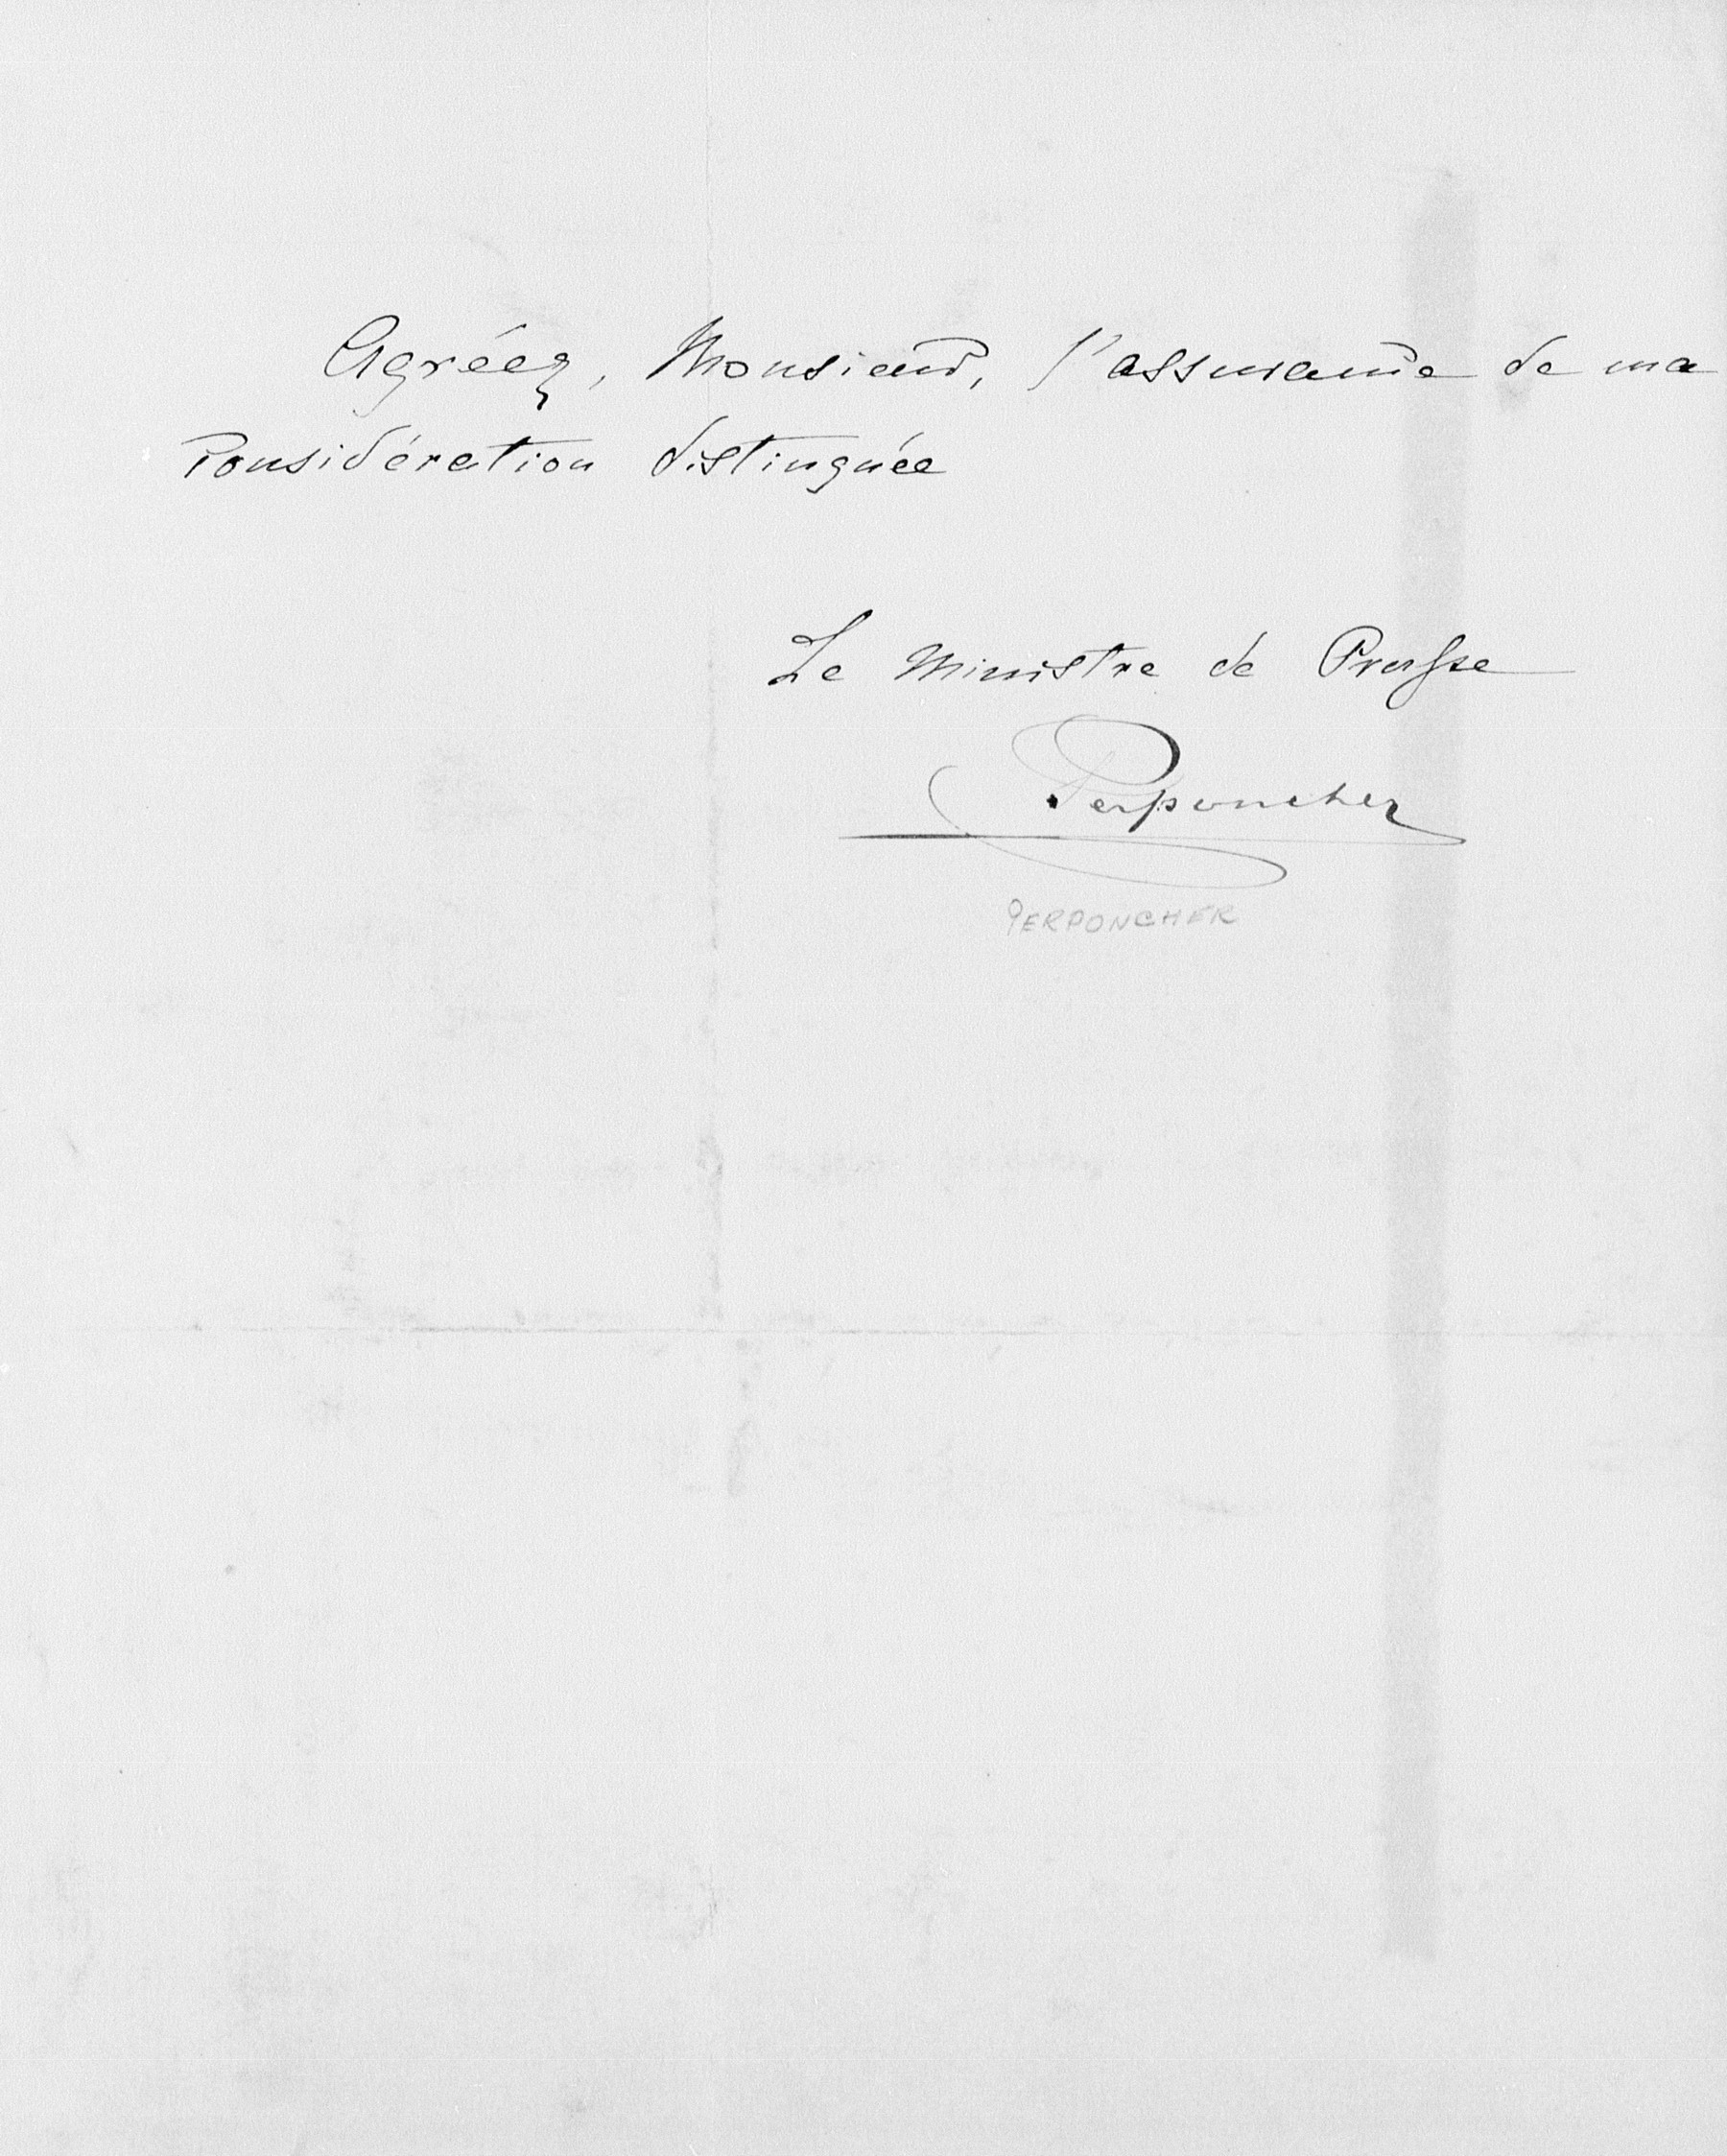 Agréez, Monsieur, l'assurance de ma
considération distinguée
Le Ministre de Prusse
Perponcher
PERPONCHER